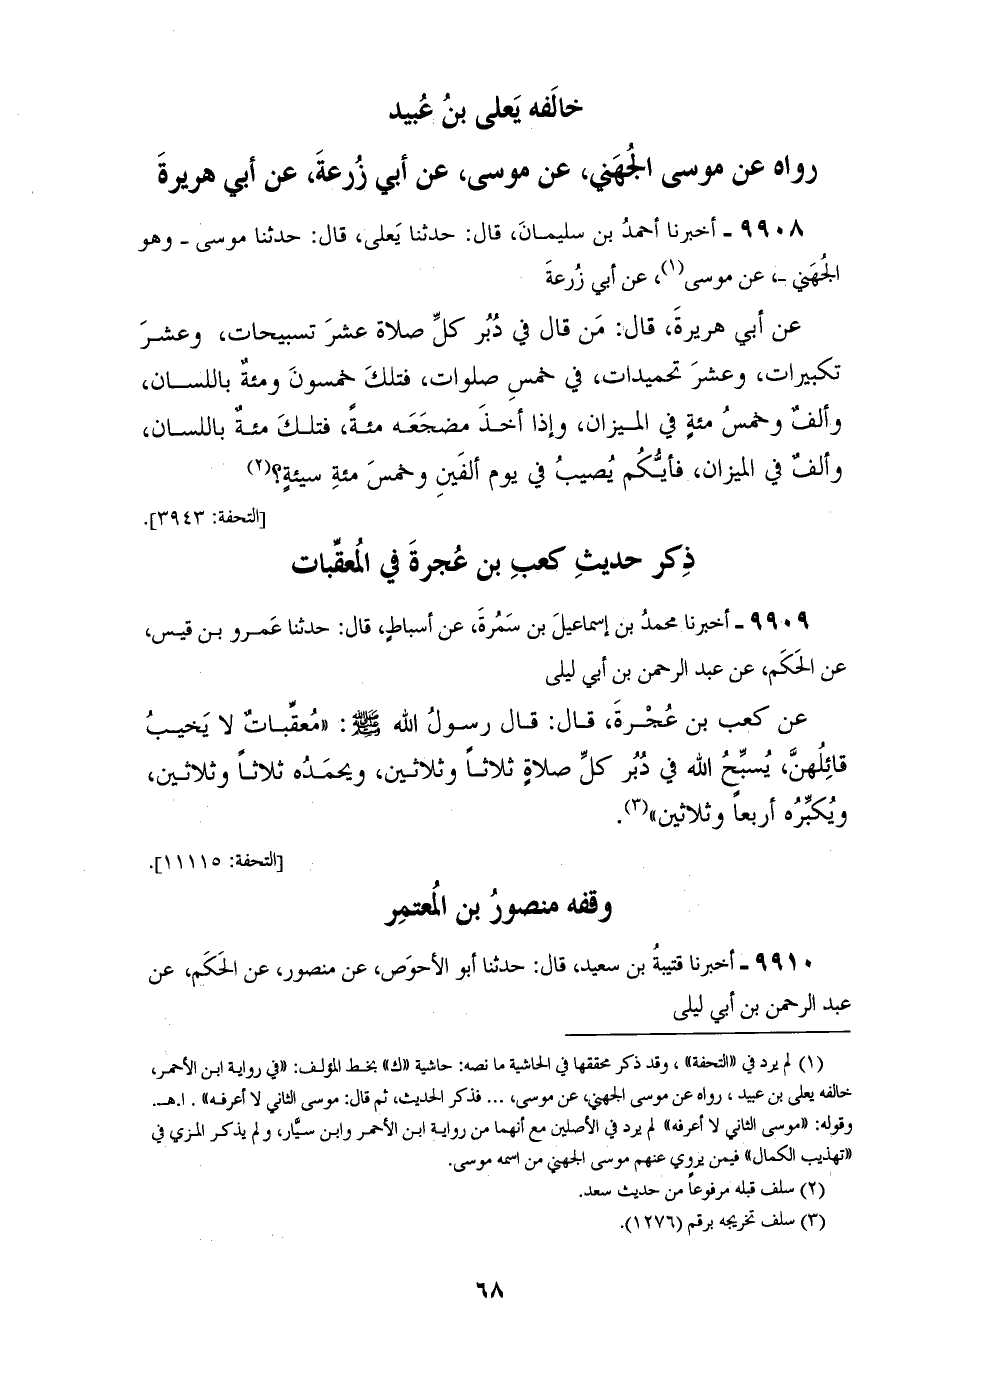 خالَفه يَعلى بنُ عُبيد
رواه عن موسى الجُهَني، عن موسى، عن أبي زُرعةَ، عن أبي هريرةَ
٩٩٠٨ ـ أخبرنا أحمدُ بن سليمـانَ، قال: حدثنا يَعلى، قال: حدثنا موسى ـ وهو
الجُهَني ـ، عن موسى(١)، عن أبي زُرعةَ
عن أبي هريرةَ، قال: مَن قال في دُبُر كلِّ صلاة عشرَ تسبيحات، وعشـرَ
تكبيرات، وعشرَ تحميدات، في خمسِ صلوات، فتلكَ خمسونَ ومئةٌ باللســان،
وألفٌ وخمسُ مئةٍ في المـيزان، وإذا أخـذَ مضجَعَـه مئـةً، فتلـكَ مئـةٌ باللسـان،
وألفٌ في الميزان، فأيُّكُم يُصيبُ في يوم ألفَينِ وخمسَ مئةِ سيئةٍ؟(٢)
[التحفة: ٣٩٤٣].
ذِكر حديثِ كعبِ بن عُجرةَ في المُعقِّبات
٩٩٠٩ ـ أخبرنا محمدُ بن إسماعيلَ بن سَمُرةَ، عن أسباطٍ، قال: حدثنا عَمـرو بـن قيـس،
عن الحَكَم، عن عبد الرحمن بن أبي ليلى
عن كعب بن عُجْـرةَ، قـال: قـال رسـولُ الله ﷺ: «مُعقِّبـاتٌ لا يَخيـبُ
قائِلُهنَّ، يُسبِّحُ الله في دُبُر كلِّ صلاةٍ ثلاثـاً وثلاثـين، ويحمَدُه ثلاثـاً وثلاثـين،
ويُكبِّرُه أربعاً وثلاثين»(٣).
[التحفة: ١١١١٥].
وقفه منصورُ بن المُعتمِر
٩٩١٠ ـ أخبرنا قتيبةُ بن سعيد، قال: حدثنا أبو الأحوَص، عن منصور، عن الحَكَم، عن
عبد الرحمن بن أبي ليلى
(١) لم يرد في «التحفة» ، وقد ذكر محققها في الحاشية ما نصه: حاشية «ك» بخـط المؤلـف: «في روايـة ابـن الأحمـر،
خالفه يعلى بن عبيد ، رواه عن موسى الجهني، عن موسى، ... فذكر الحديث، ثم قال: موسى الثاني لا أعرفـه» . ا.هــ.
وقوله: «موسى الثاني لا أعرفه» لم يرد في الأصلين مع أنهما من رواية ابن الأحمر وابن سيَّار، ولم يذكـر المـزي في
«تهذيب الكمال» فيمن يروي عنهم موسى الجهني من اسمه موسى.
(٢) سلف قبله مرفوعاً من حديث سعد.
(٣) سلف تخريجه برقم (١٢٧٦).
٦٨